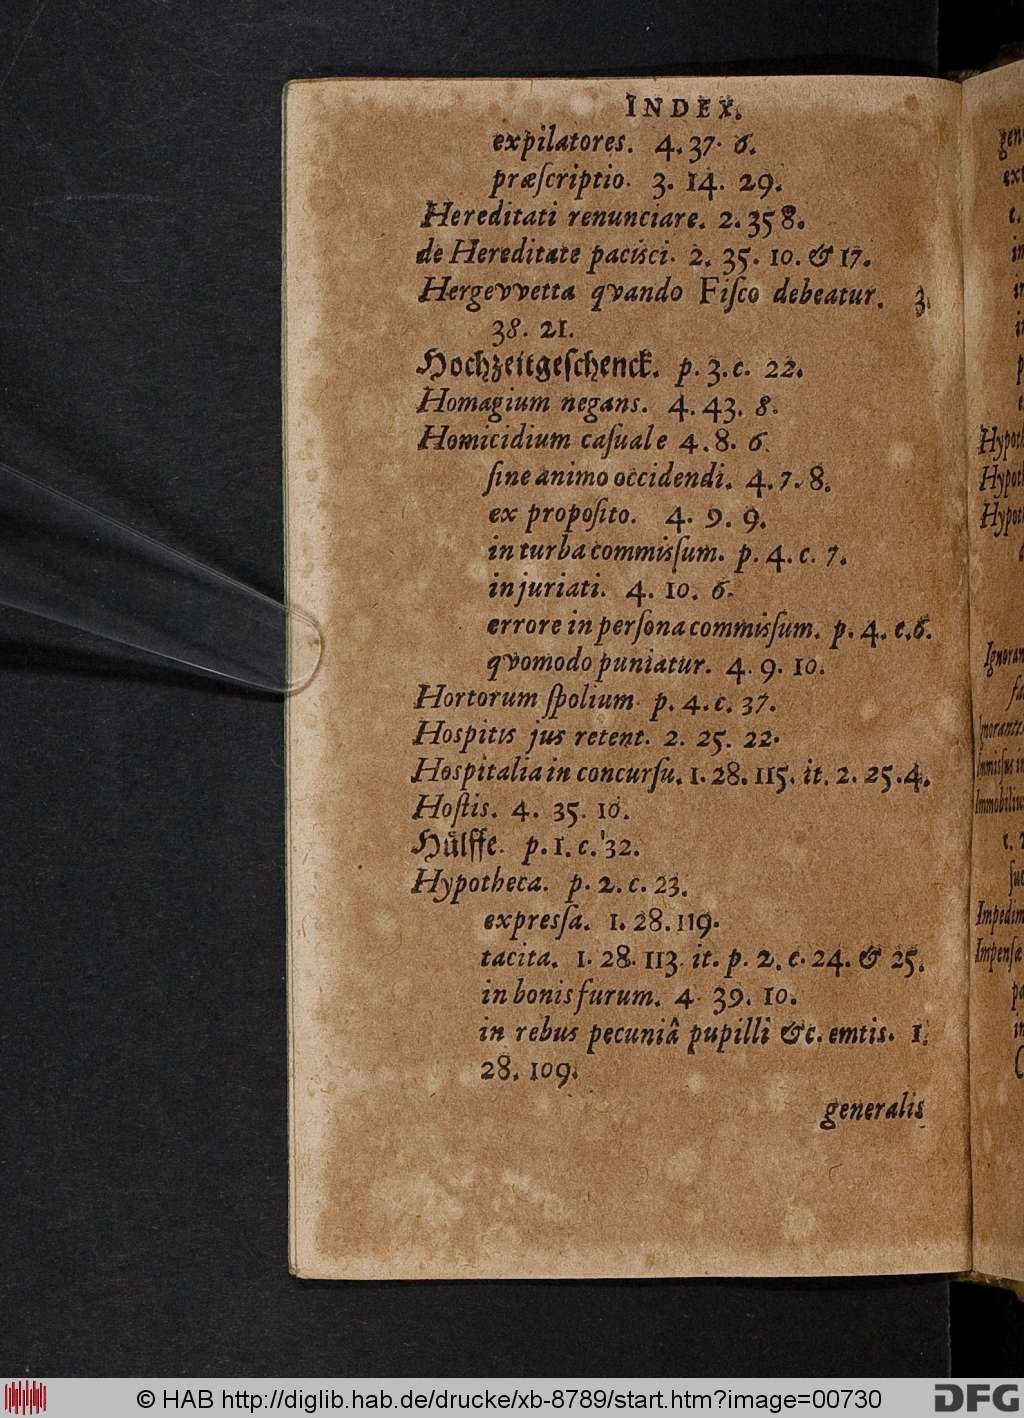 INDEX.
expilatores. 4. 37. 6.
præſcriptio. 3. 14. 29.
Hereditati renunciare. 2. 35 8.
de Hereditate pacisci. 2. 35. 10. & 17.
Hergevvetta qvando Fiſco debeatur. 3.
38. 21.
Hochzeitgeſchenck. p. 3. c. 22.
Homagium negans. 4. 43. 8.
Homicidium caſuale 4. 8. 6.
ſine animo occidendi. 4. 7. 8.
ex propoſito. 4. 9. 9.
in turba commisſum. p. 4. c. 7.
injuriati. 4. 10. 6.
errore in perſona commisſum. p. 4. c. 6.
qvomodo puniatur. 4. 9. 10.
Hortorum ſpolium. p. 4. c. 37.
Hospitis jus retent. 2. 25. 22.
Hospitalia in concurſu. 1. 28. 115. it. 2. 25. 4.
Hoſtis. 4. 35. 10.
Hůlffe. p. 1. c. 32.
Hypotheca. p. 2. c. 23.
expresſa. 1. 28. 119.
tacita. 1. 28. 113. it. p. 2. c. 24. & 25.
in bonis furum. 4. 39. 10.
in rebus pecuniâ pupilli &c. emtis. 1.
28. 109.
generalis
Hypoth
Hypoth
Hypoth
Ignoran
Immobiliu
Impedim
Impenſæ
© HAB http://diglib.hab.de/drucke/xb-8789/start.htm?image=00730
DFG